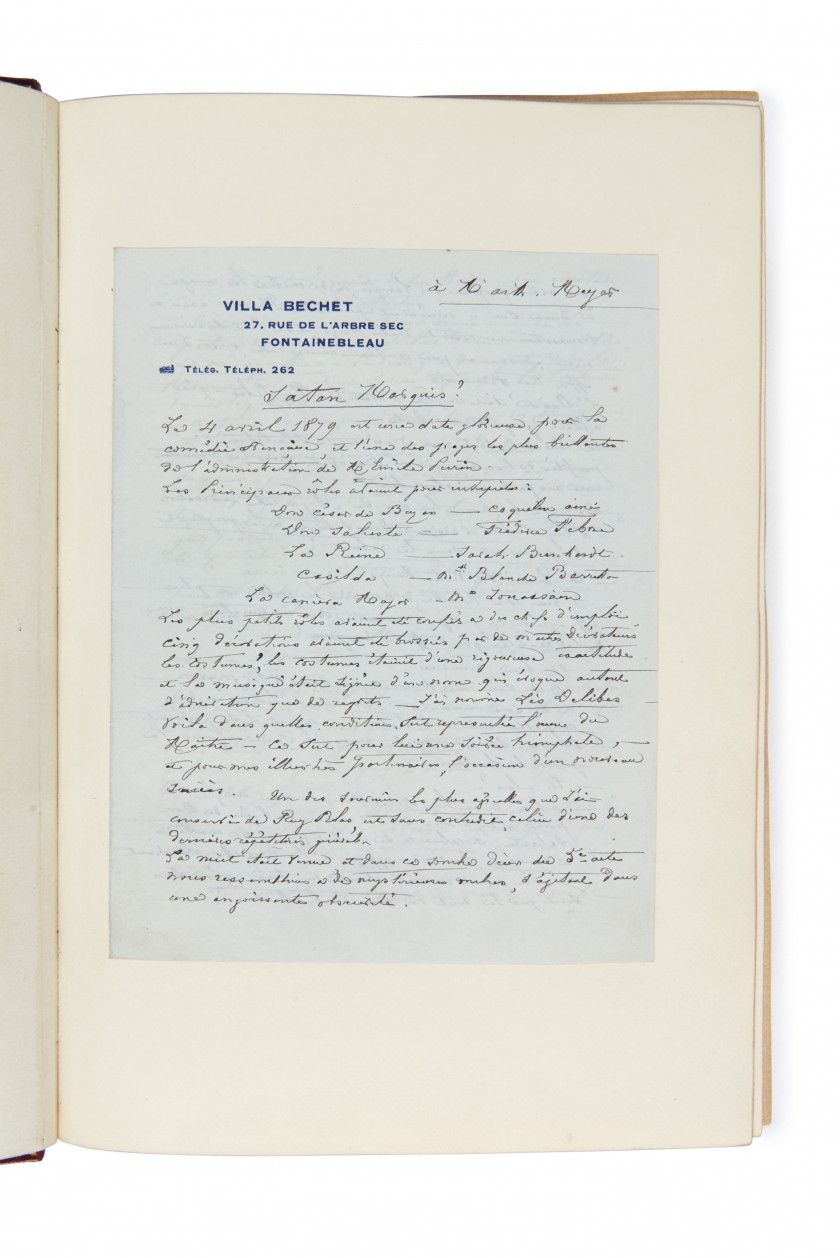 à M Arth. Meyer
VILLA BECHET
27, RUE DE L'ARBRE SEC
FONTAINEBLEAU
TÉLÉG. TÉLÉPH. 262
Satan Marquis!
Le 4 avril 1879 est une date glorieuse pour la
comédie Française, et l'une des pages les plus brillantes
de l'administration de M. Emile Perrin.
Les Principaux rôles étaient pour interprètes:
Don César de Bazan — Coquelin ainé
Don Saluste — Frédéric Febvre
La Reine — Sarah Bernhardt.
Casilda — Mlle Blanche Barretta
La camerera Mayor — Me Jouassain
Les plus petits rôles avaient été confiés a des chefs d'emploi
cinq décorations avaient été brossées par de maitres Décorateurs
les costumes, les costumes étaient d'une rigoureuse exactitude
et la musique était signée d'un nom qui évoque autant
d'admiration que de regrets — J'ai nommé Léo Delibes
Voila dans quelles conditions, fut representée l'œuvre du
Maître — Ce fut pour lui une soirée triomphale,
et pour ses illustres partenaires, l'occasion d'un nouveau
succès. Un des souvenirs les plus que J'ai
conservé de Ruy Blas est sans contredit, celui d'une des
dernières répétitions générales.
La nuit était venue et dans ce sombre décor du 5me acte
nous ressemblions a de mystérieuses ombres, s'agitant dans
une angoissante obscurité.